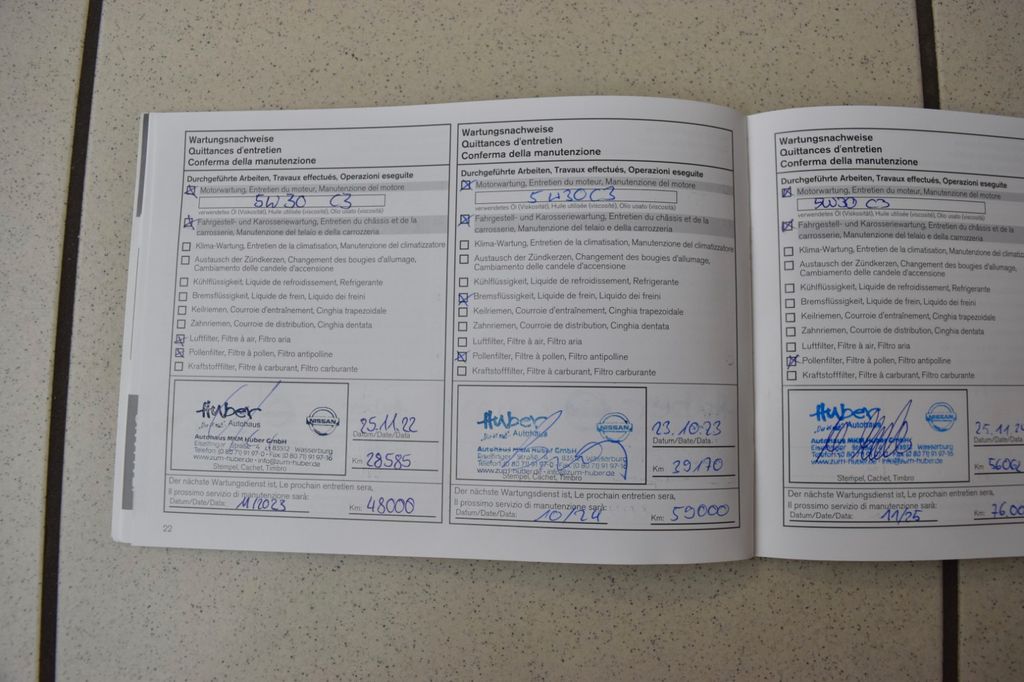 Wartungsnachweise
Quittances d'entretien
Conferma della manutenzione
Durchgeführte Arbeiten, Travaux effectués, Operazioni eseguite
Motorwartung, Entretien du moteur, Manutenzione del motore
5W30 C3
verwendetes Öl (Viskosität), Huile utilisée (viscosité), Olio usato (viscosità)
Fahrgestell- und Karosseriewartung, Entretien du châssis et de la
carrosserie, Manutenzione del telaio e della carrozzeria
Klima-Wartung, Entretien de la climatisation, Manutenzione del climatizzatore
Austausch der Zündkerzen, Changement des bougies d'allumage,
Cambiamento delle candele d'accensione
Kühlflüssigkeit, Liquide de refroidissement, Refrigerante
Bremsflüssigkeit, Liquide de frein, Liquido dei freini
Keilriemen, Courroie d'entraînement, Cinghia trapezoidale
Zahnriemen, Courroie de distribution, Cinghia dentata
Luftfilter, Filtre à air, Filtro aria
Pollenfilter, Filtre à pollen, Filtro antipolline
Kraftstofffilter, Filtre à carburant, Filtro carburante
Huber
Autohaus
NISSAN
Autohaus MKM Huber GmbH
Eiselfinger Straße 4 · 83512 Wasserburg
Telefon (0 80 71) 91 97-0 · Fax (0 80 71) 91 97-16
www.zum-huber.de · info@zum-huber.de
Stempel, Cachet, Timbro
25.11.22
Datum/Date/Data
Km: 28585
Der nächste Wartungsdienst ist, Le prochain entretien sera,
Il prossimo servizio di manutenzione sarà:
Datum/Date/Data: 11/2023 Km: 48000
22
Wartungsnachweise
Quittances d'entretien
Conferma della manutenzione
Durchgeführte Arbeiten, Travaux effectués, Operazioni eseguite
Motorwartung, Entretien du moteur, Manutenzione del motore
5W30 C3
verwendetes Öl (Viskosität), Huile utilisée (viscosité), Olio usato (viscosità)
Fahrgestell- und Karosseriewartung, Entretien du châssis et de la
carrosserie, Manutenzione del telaio e della carrozzeria
Klima-Wartung, Entretien de la climatisation, Manutenzione del climatizzatore
Austausch der Zündkerzen, Changement des bougies d'allumage,
Cambiamento delle candele d'accensione
Kühlflüssigkeit, Liquide de refroidissement, Refrigerante
Bremsflüssigkeit, Liquide de frein, Liquido dei freini
Keilriemen, Courroie d'entraînement, Cinghia trapezoidale
Zahnriemen, Courroie de distribution, Cinghia dentata
Luftfilter, Filtre à air, Filtro aria
Pollenfilter, Filtre à pollen, Filtro antipolline
Kraftstofffilter, Filtre à carburant, Filtro carburante
Huber
Autohaus
NISSAN
Autohaus MKM Huber GmbH
Eiselfinger Straße 4 · 83512 Wasserburg
Telefon (0 80 71) 91 97-0 · Fax (0 80 71) 91 97-16
www.zum-huber.de · info@zum-huber.de
Stempel, Cachet, Timbro
23.10.23
Datum/Date/Data
Km: 39170
Der nächste Wartungsdienst ist, Le prochain entretien sera,
Il prossimo servizio di manutenzione sarà:
Datum/Date/Data: 10/24 Km: 59000
Wartungsnachweise
Quittances d'entretien
Conferma della manutenzione
Durchgeführte Arbeiten, Travaux effectués, Operazioni eseguite
Motorwartung, Entretien du moteur, Manutenzione del motore
5W30 C3
verwendetes Öl (Viskosität), Huile utilisée (viscosité), Olio usato (viscosità)
Fahrgestell- und Karosseriewartung, Entretien du châssis et de la
carrosserie, Manutenzione del telaio e della carrozzeria
Klima-Wartung, Entretien de la climatisation, Manutenzione del
Austausch der Zündkerzen, Changement des bougies d'allumage,
Cambiamento delle candele d'accensione
Kühlflüssigkeit, Liquide de refroidissement, Refrigerante
Bremsflüssigkeit, Liquide de frein, Liquido dei freini
Keilriemen, Courroie d'entraînement, Cinghia trapezoidale
Zahnriemen, Courroie de distribution, Cinghia dentata
Luftfilter, Filtre à air, Filtro aria
Pollenfilter, Filtre à pollen, Filtro antipolline
Kraftstofffilter, Filtre à carburant, Filtro carburante
Huber
Autohaus
NISSAN
Autohaus MKM Huber GmbH
Eiselfinger Straße 4 · 83512 Wasserburg
Telefon (0 80 71) 91 97-0 · Fax (0 80 71) 91 97-16
www.zum-huber.de · info@zum-huber.de
Stempel, Cachet, Timbro
25.11.24
Datum/Date/Data
Km:
Der nächste Wartungsdienst ist, Le prochain entretien sera,
Il prossimo servizio di manutenzione sarà:
Datum/Date/Data: 11/25 Km: 7600